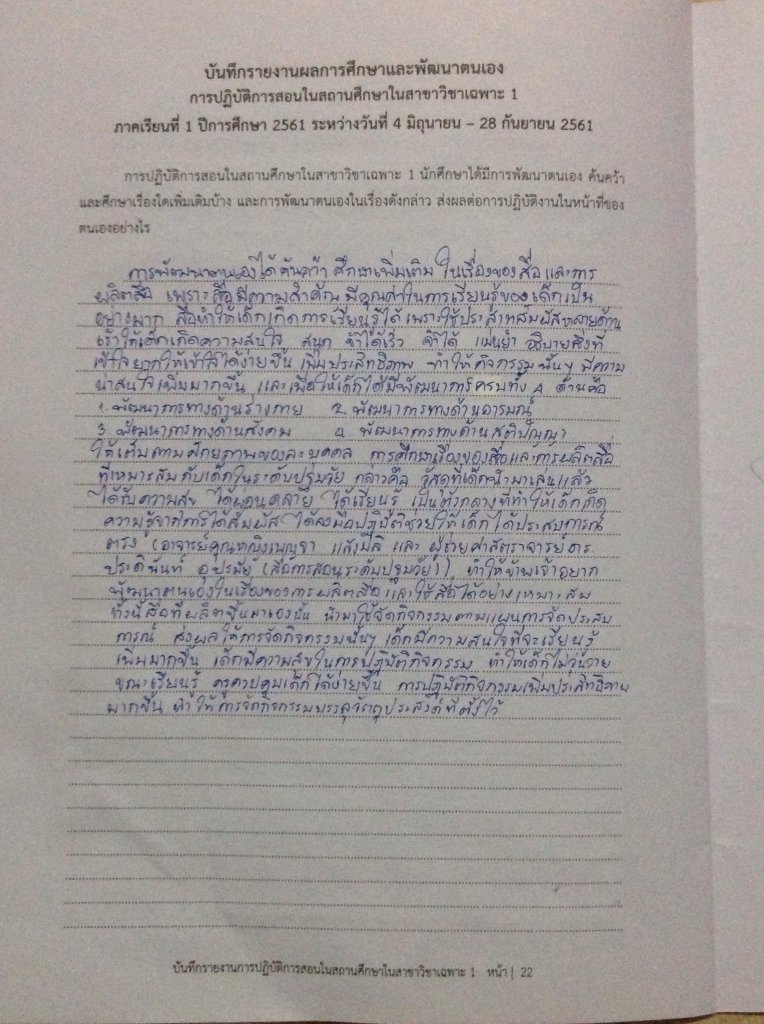 บันทึกรายงานผลการศึกษาและพัฒนาตนเอง
การปฏิบัติการสอนในสถานศึกษาในสาขาวิชาเฉพาะ 1
ภาคเรียนที่ 1 ปีการศึกษา 2561 ระหว่างวันที่ 4 มิถุนายน – 28 กันยายน 2561
การปฏิบัติการสอนในสถานศึกษาในสาขาวิชาเฉพาะ 1 นักศึกษาได้มีการพัฒนาตนเอง ค้นคว้า
และศึกษาเรื่องใดเพิ่มเติมบ้าง และการพัฒนาตนเองในเรื่องดังกล่าว ส่งผลต่อการปฏิบัติงานในหน้าที่ของ
ตนเองอย่างไร
การพัฒนาตนเองได้ค้นคว้า ศึกษาเพิ่มเติม ในเรื่องของสื่อ และการ
ผลิตสื่อ เพราะสื่อมีความสำคัญ มีคุณค่าในการเรียนรู้ของเด็กเป็น
อย่างมาก สื่อทำให้เด็กเกิดการเรียนรู้ได้ เพราะใช้ประสาทสัมผัสหลายด้าน
เราให้เด็กเกิดความสนใจ สนุก จำได้เร็ว จำได้ แม่นยำ อธิบายสิ่งที่
เข้าใจยากให้เข้าใจได้ง่ายขึ้น เพิ่มประสิทธิภาพ ทำให้กิจกรรมนั้นๆ มีความ
น่าสนใจเพิ่มมากขึ้น และเพื่อให้เด็กได้มีพัฒนาการครบทั้ง 4 ด้านคือ
1. พัฒนาการทางด้านร่างกาย 2. พัฒนาการทางด้านอารมณ์
3. พัฒนาการทางด้านสังคม 4. พัฒนาการทางด้านสติปัญญา
ให้เต็มตามศักยภาพของละบุคคล การศึกษาเรื่องของสื่อและการผลิตสื่อ
ที่เหมาะสมกับเด็กในระดับปฐมวัย กล่าวคือ วัสดุที่เด็กนำมาเล่นแล้ว
ได้รับความสุข ได้ผ่อนคลาย ได้เรียนรู้ เป็นตัวกลางที่ทำให้เด็กเกิด
ความรู้จากการได้สัมผัส ได้ลงมือปฏิบัติช่วยให้เด็กได้ประสบการณ์
ตรง (อาจารย์คุณหญิงเบญจา แสงมลิ และ ผู้ช่วยศาสตราจารย์ ดร.
ประดินันท์ อุปรมัย (สื่อการสอนระดับปฐมวัย)) ทำให้ข้าพเจ้าอยาก
พัฒนาตนเองในเรื่องของการผลิตสื่อ และใช้สื่อได้อย่างเหมาะสม
ทั้งนี้สื่อที่ผลิตขึ้นมาเองนั้น นำมาใช้จัดกิจกรรมตามแผนการจัดประสบ
การณ์ ส่งผลให้การจัดกิจกรรมนั้นๆ เด็กมีความสนใจที่จะเรียนรู้
เพิ่มมากขึ้น เด็กมีความสุขในการปฏิบัติกิจกรรม ทำให้เด็กไม่วุ่นวาย
ขณะเรียนรู้ ครูควบคุมเด็กได้ง่ายขึ้น การปฏิบัติกิจกรรมเพิ่มประสิทธิภาพ
มากขึ้น ทำให้การจัดกิจกรรมบรรลุวัตถุประสงค์ที่ตั้งไว้
บันทึกรายงานการปฏิบัติการสอนในสถานศึกษาในสาขาวิชาเฉพาะ 1 หน้า | 22